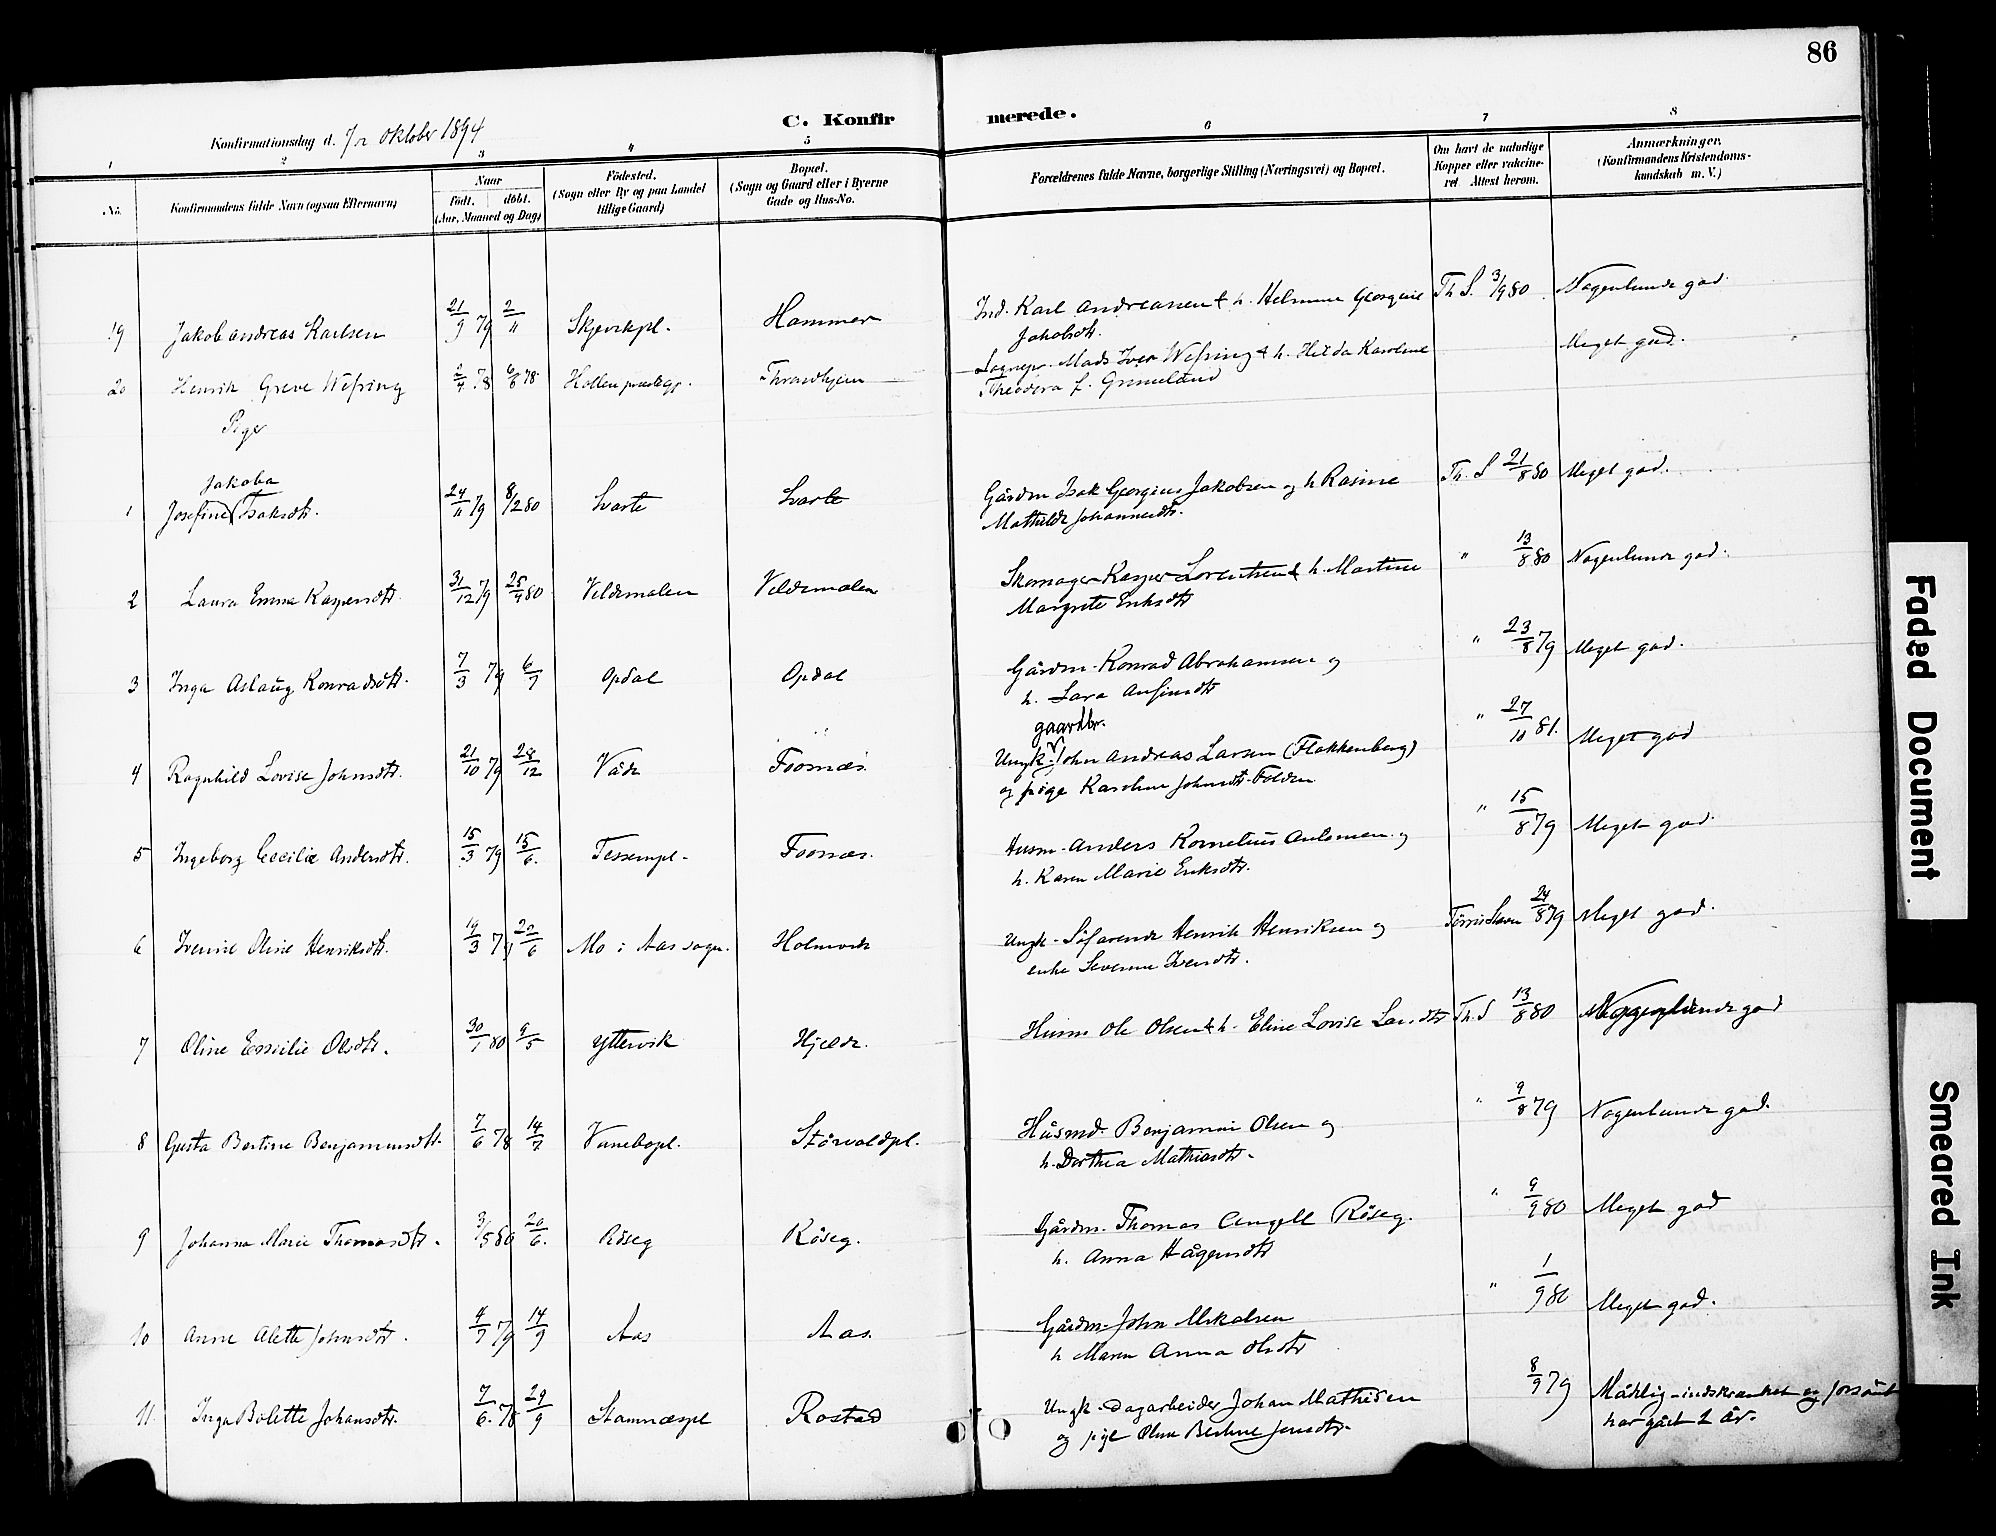 86
C. Konfirmerede.
Konfirmationsdag d. 7/ oktober 1894
1 2 3 4 5 6 7 8
No.
Konfirmandens fulde Navn (ogsaa Efternavn)
Naar
født. døbt.
(Aar, Maaned og Dag)
Fødested.
(Sogn eller By og paa Landet
tillige Gaard)
Bopæl.
(Sogn og Gaard eller i Byerne
Gade og Hus-No.
Forældrenes fulde Navne, borgerlige Stilling (Næringsvei) og Bopæl.
Om havt de naturlige
Kopper eller vakcine-
ret Attest herom.
Anmærkninger.
(Konfirmandens Kristendoms-
kundskab m. V.)
19 Jakob Andreas Karlsen 21/9 79 2/11 Hammer Ind. Karl Andreassen & h. Georgine Th. S. 3/9 80 Nogenlunde god
Jakobsdt.
20 Henrik Greve Wefring 2/4 78 6/8 78 Throndhjem Mads Iver Wefring & h. Hilda Karoline Meget god.
Theodora f. Grimelund
Piger
Jakoba
1 Josefine Isaksdt. 24/11 79 8/2 80 Svarte Svarte Gårdm Isak Georgius Jakobsen og h Rasine Th. S 21/8 80 Meget god.
Mathilde Johannesdt.
2 Laura Emma Kaspersdt. 31/12 79 25/9 80 Veldemalen Veldemalen Skomager Kasper Lorentsen & h. Martine " 13/8 80 Nogenlunde god.
Margrete Eriksdt
3 Inga Aslaug Konradsdt. 7/3 79 6/7 Opdal Opdal Gårdm. Konrad Abrahamsen og " 23/8 79 Meget god.
h. Sara Anfinsdt
gaardbr.
4 Ragnhild Lovise Johnsdt. 21/10 79 28/12 Våde Foosnæs. Ungk. John Andreas Larsen (Flakkenberg) " 27/10 81. Meget god
og pige Karoline Johnsdt. Folden
5 Ingeborg Cecilie Andersdt. 15/3 79 15/6. Tessempl. Foosnæs. Husm. Anders Kornelius Antonsen og " 15/8 79 Meget god.
h. Karen Marie Eriksdt.
6 Ivenine Oline Henriksdt. 19/3 79 22/6 Mo i Aas sogn. Holmvik Ungk. Søfarende Henrik Henriksen og 24/8 79 Meget god.
enke Severine Iversdt.
7 Oline Emilie Olsdt. 30/1 80 9/5 Yttervik Hjelde. Husm Ole Olsen & h. Eline Lovise Th. S 13/8 80 Nogenlunde god
8 Gusta Bertine Benjaminsdt. 7/6 78 14/7 Vannebopl. Størvoldpl. Husmd. Benjamin Olsen og " 9/8 79 Nogenlunde god.
h. Dorthea Mathiasdt.
9 Johanna Marie Thomasdt. 3/5 80 20/6. Røseg Røseg. Gårdm. Thomas Angell Røseg. " 9/9 80 Meget god
h. Anna Hågensdt
10 Anne Alette Johnsdt. 4/7 79 14/9 Aas Aas. Gårdm. John Mikalsen " 1/9 80 Meget god.
h Maren Anna Olsdt
11. Inga Bolette Johansdt. 7/6. 78 29/9 Stamnæspl Rostad Ungk. dagarbeider Johan Mathisen 8/9 79 Måtlig - indskrænket og forsømt
og pige Oline Bertine Jensdt. har gået 2 år.
Faded Document
Smeared Ink